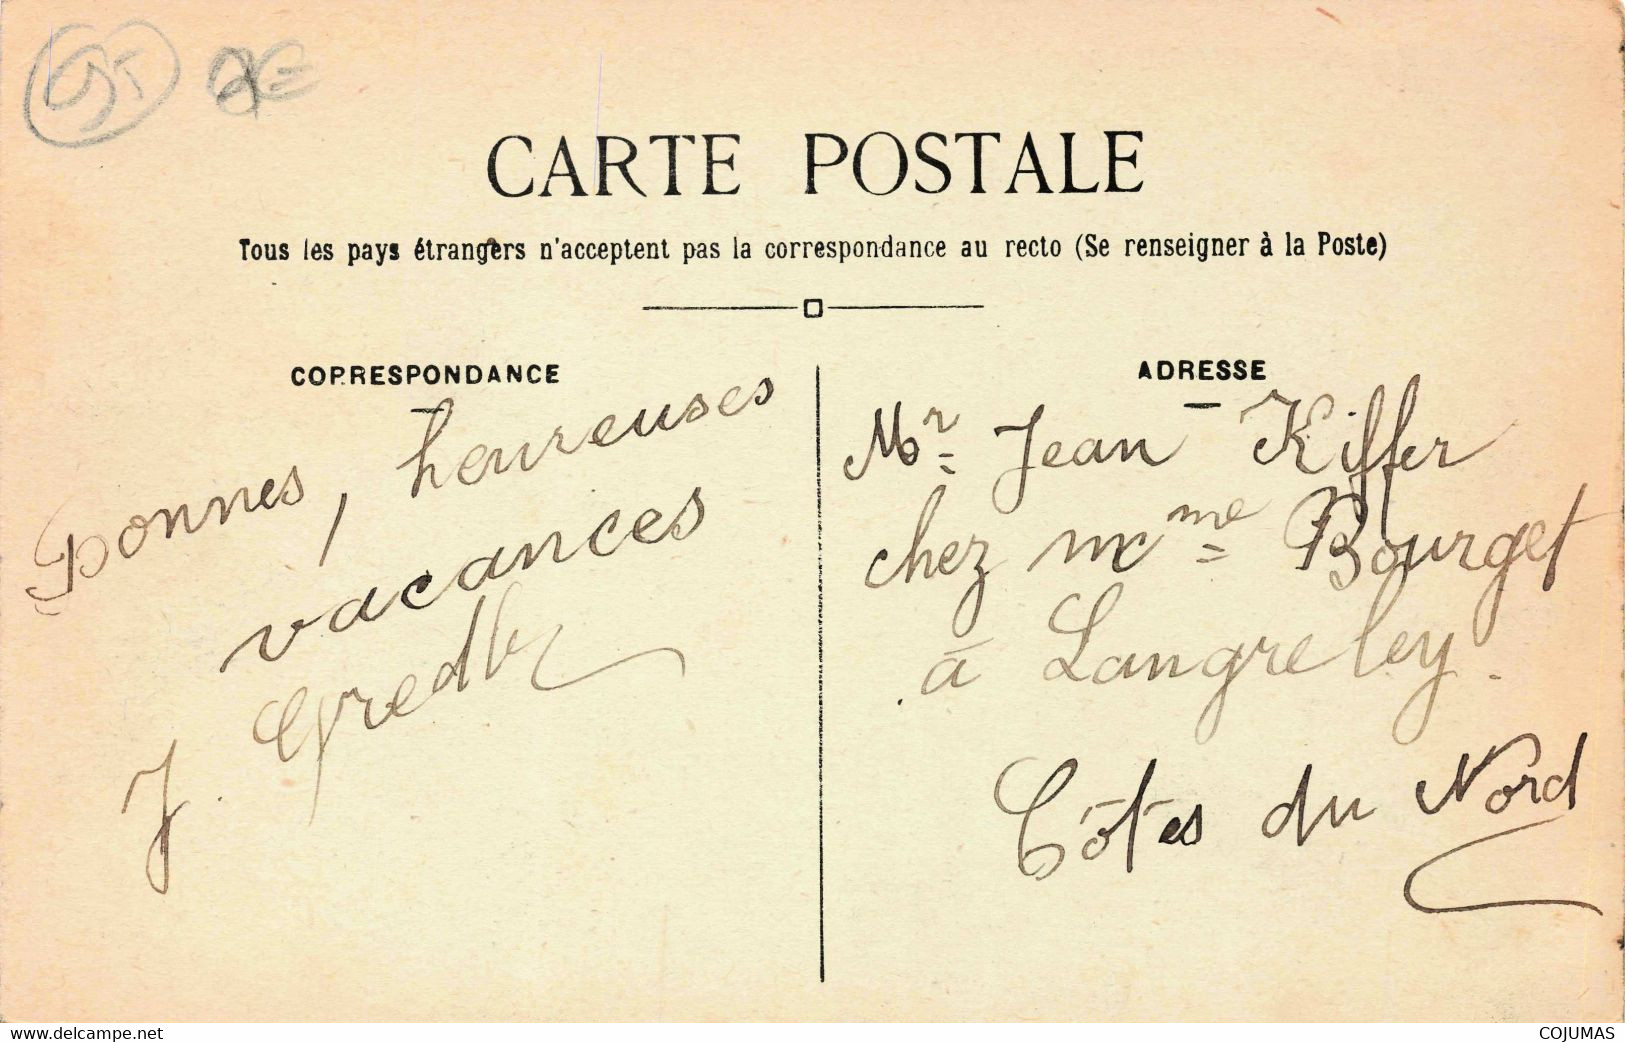 CARTE POSTALE
Tous les pays étrangers n'acceptent pas la correspondance au recto (Se renseigner à la Poste)
CORRESPONDANCE
Bonnes, heureuses
vacances
J.
ADRESSE
Mr Jean Kiffer
chez Mme Bourget
à Langreley.
Côtes du Nord
www.delcampe.net
COJUMAS